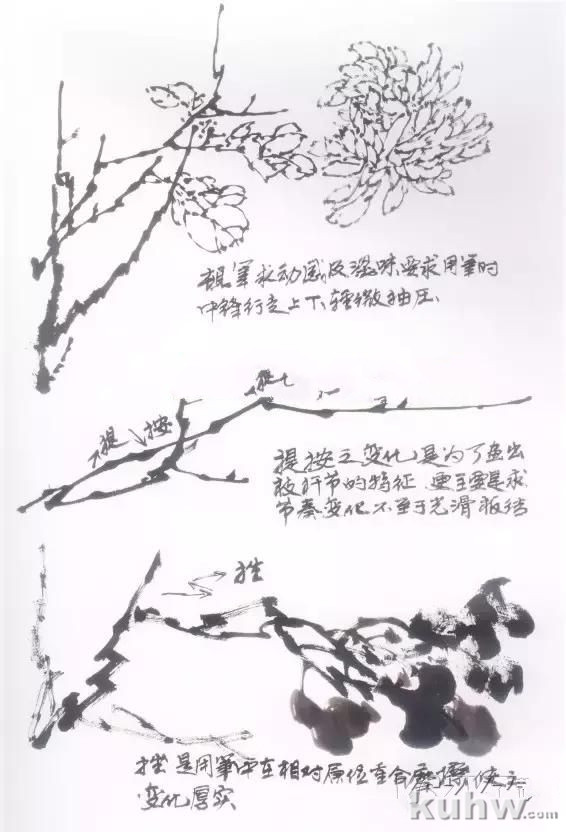 求动感及涩味要求用笔时
中锋行走上下轻微抽压
提 按
提按之变化是为了画出
枝杆节的特征 更主要是求
节奏变化不至于光滑板结
挫
挫是用笔中在相对原位重合摩擦使之
变化厚实
kuhw.com